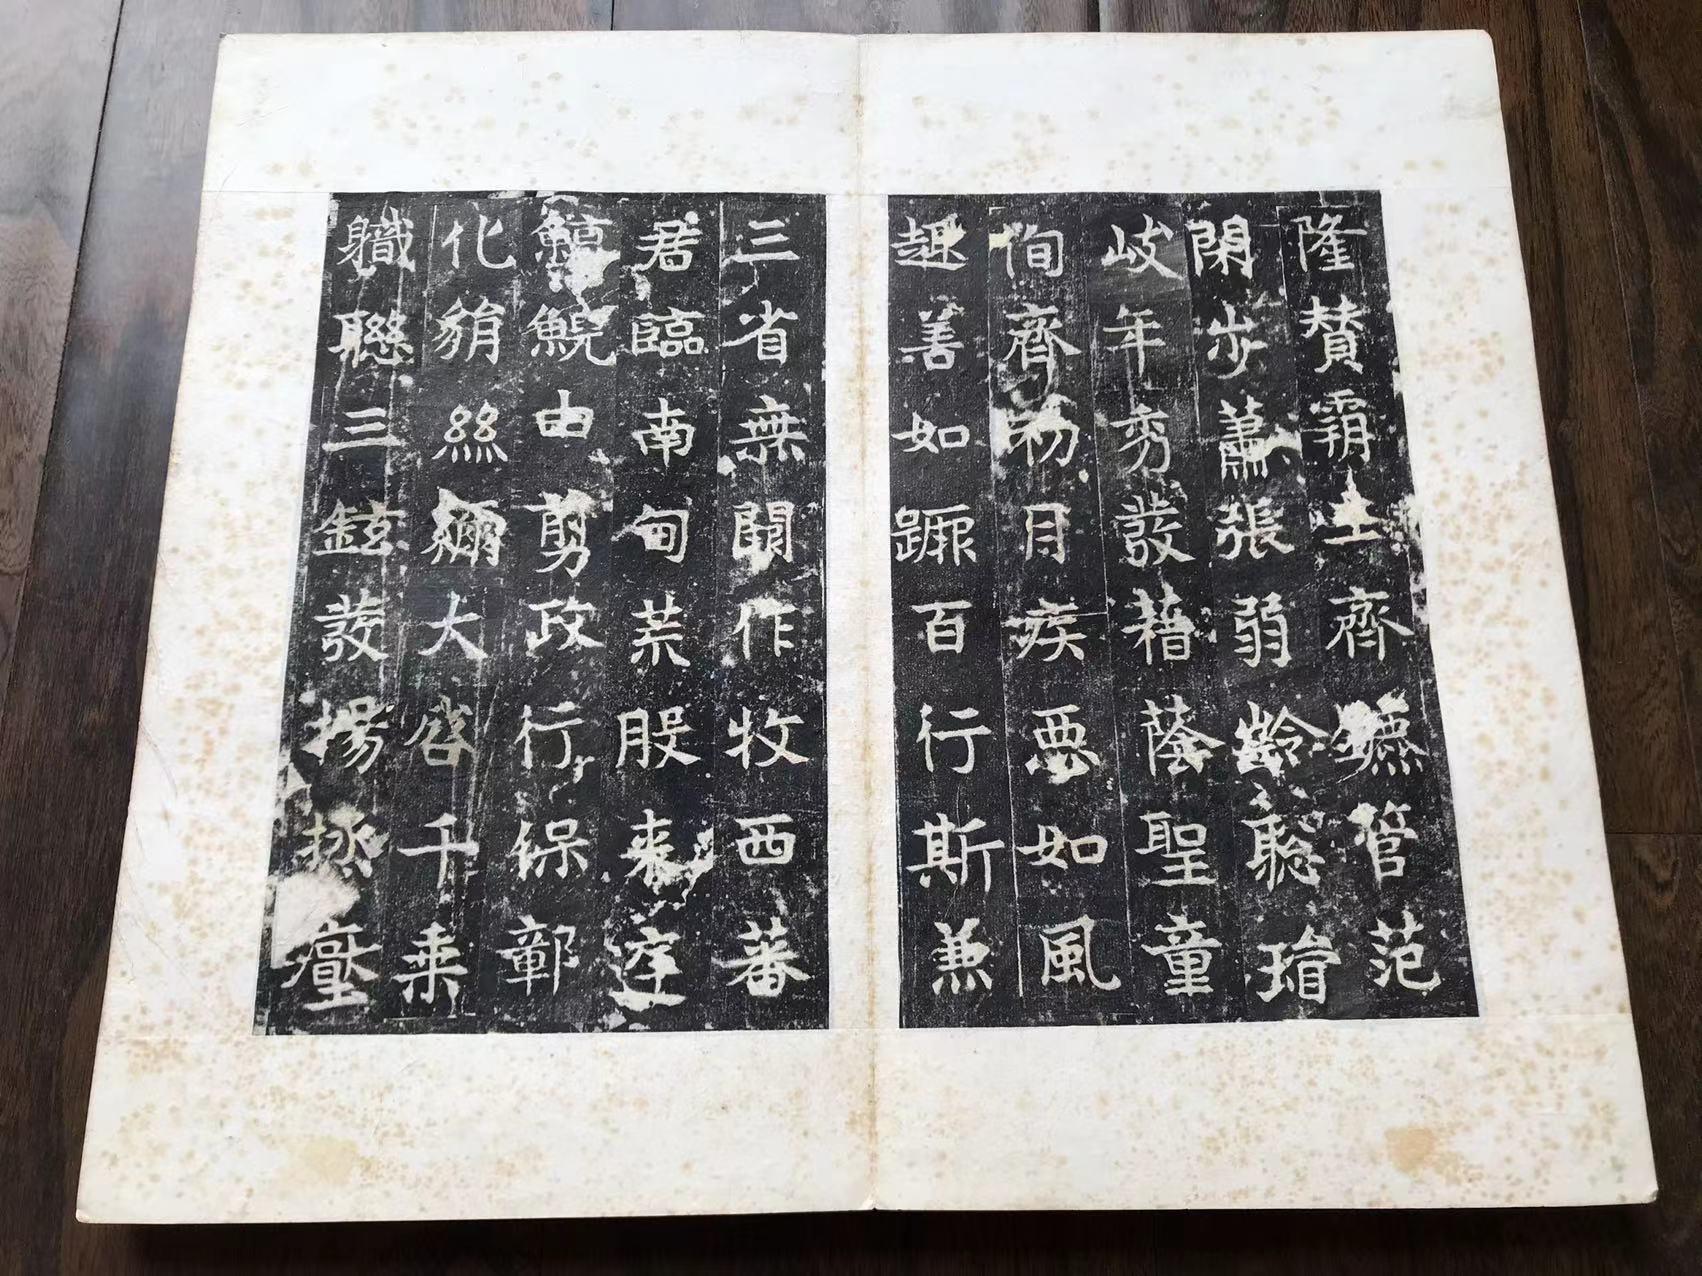 隆賛霸土齊鑣管范
閑步蕭張弱齡聡瑁
岐年秀發藉蔭聖童
徇齊初月疾惡如風
趣善如蹶百行斯兼
三省無闕作牧西蕃
君臨南甸荒服来庭
鯨鯢由剪政行保鄣
化猾絲綸大啓千乗
軄聯三鉉發揚拯